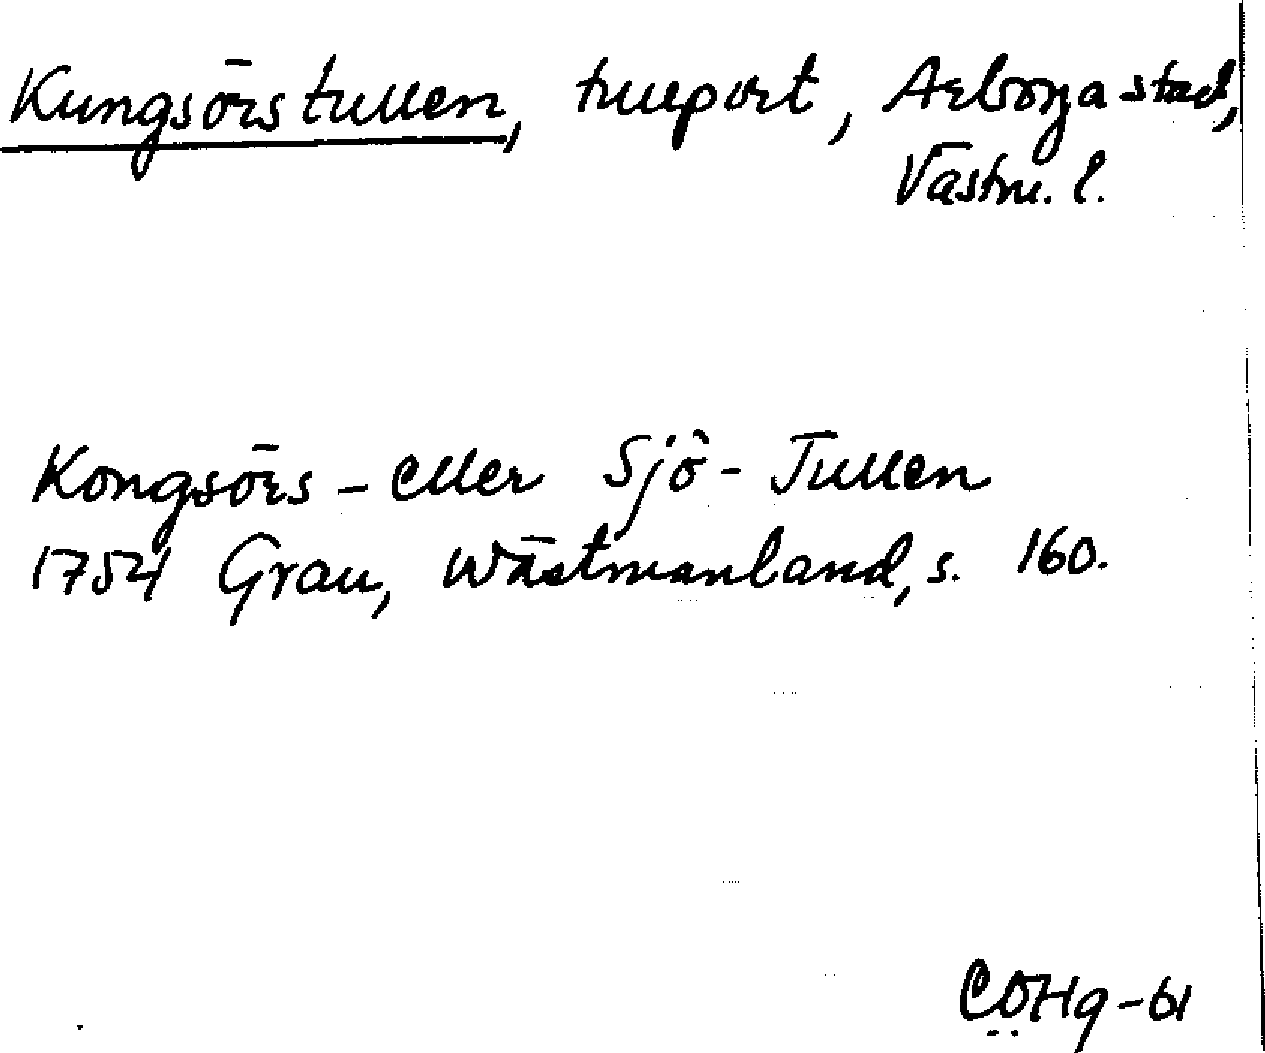 Kungsörstullen, tullport, Arboga stad,
Västm. l.
Kongsörs- eller Sjö-Tullen
1754 Grau, Wästmanland, s. 160.
CÖHg-61